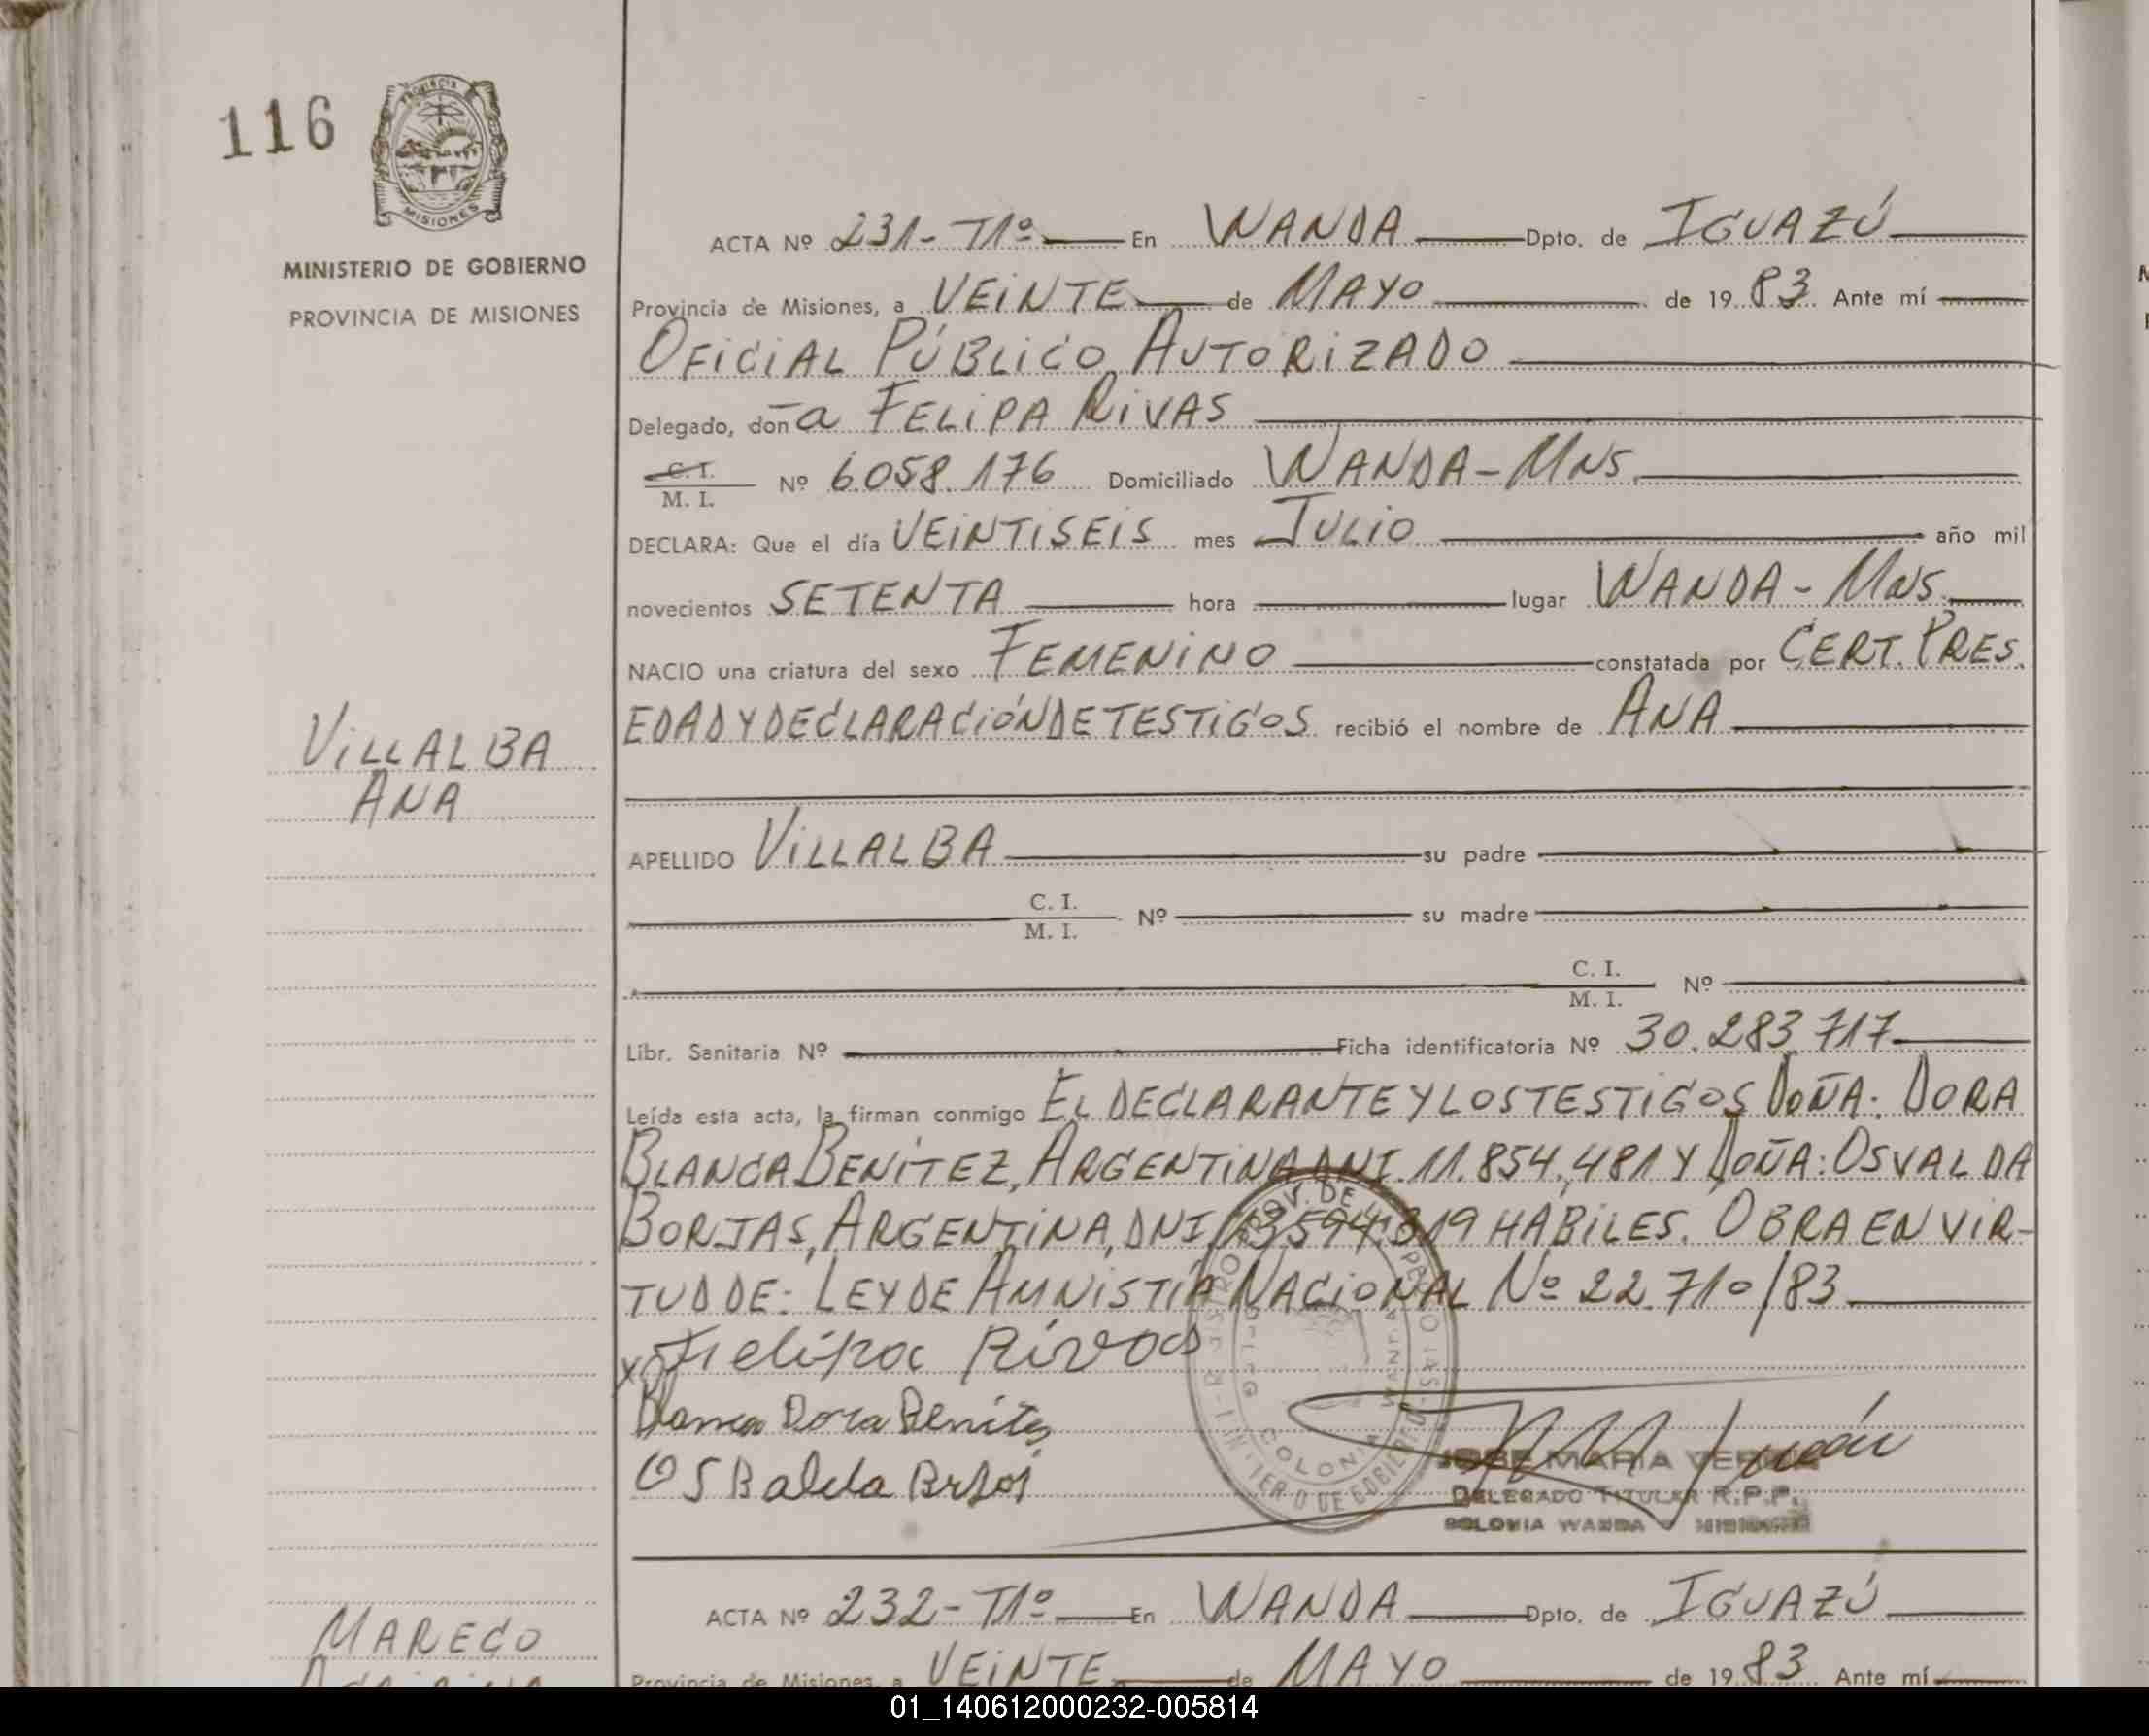 116
PROVINCIA
MISIONES
MINISTERIO DE GOBIERNO
PROVINCIA DE MISIONES
VILLALBA
ANA
ACTA Nº 231-T1º En WANDA Dpto. de IGUAZÚ
Provincia de Misiones, a VEINTE de MAYO de 1983 Ante mí
OFICIAL PÚBLICO AUTORIZADO
Delegado, doña FELIPA RIVAS
C. I.
M. I. Nº 6.058.176 Domiciliado WANDA-MNS.
DECLARA: Que el día VEINTISEIS mes JULIO año mil
novecientos SETENTA hora lugar WANDA-MNS.
NACIO una criatura del sexo FEMENINO constatada por CERT. PRES.
EDAD Y DECLARACIÓN DE TESTIGOS recibió el nombre de ANA
APELLIDO VILLALBA su padre
C. I.
M. I. Nº su madre
C. I.
M. I. Nº
Libr. Sanitaria Nº Ficha identificatoria Nº 30.283.717
Leída esta acta, la firman conmigo EL DECLARANTE Y LOS TESTIGOS DOÑA: DORA
BLANCA BENÍTEZ, ARGENTINA DNI. 11.854.481 Y DOÑA: OSVALDA
BORJAS, ARGENTINA, DNI 13.594.819 HÁBILES. OBRA EN VIR-
TUD DE: LEY DE AMNISTÍA NACIONAL Nº 22.710/83
x Felipa Rivas
Blanca Dora Benítez
OSBalda
JOSE MARIA
DELEGADO TITULAR R.P.P.
COLONIA WANDA - MISIONES
ACTA Nº 232-T1º En WANDA Dpto. de IGUAZÚ
MARECO
Provincia de Misiones, a VEINTE de MAYO de 1983 Ante mí
01_140612000232-005814